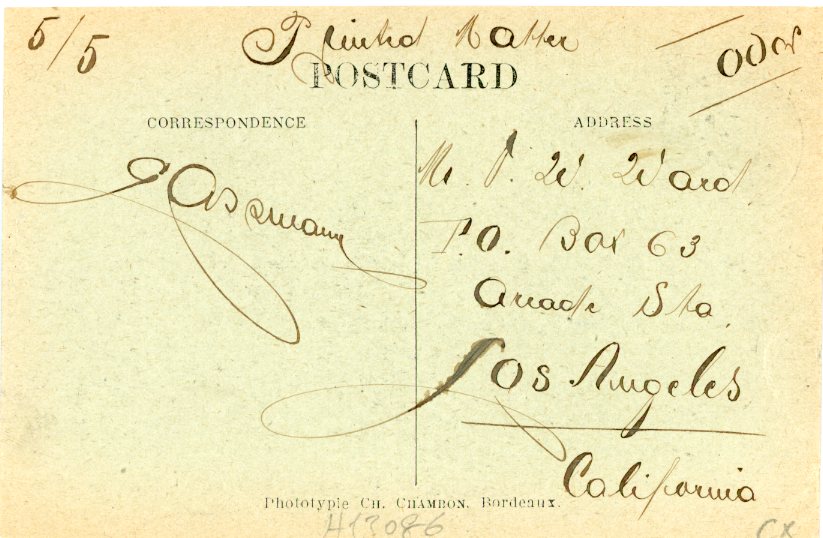 5/5
Printed Matter
POSTCARD
CORRESPONDENCE
ADDRESS
Mr. P. W. Ward
P.O. Box 63
Arcade Sta.
Los Angeles
California
Phototypie CH. CHAMBON, Bordeaux.
H13086
CX